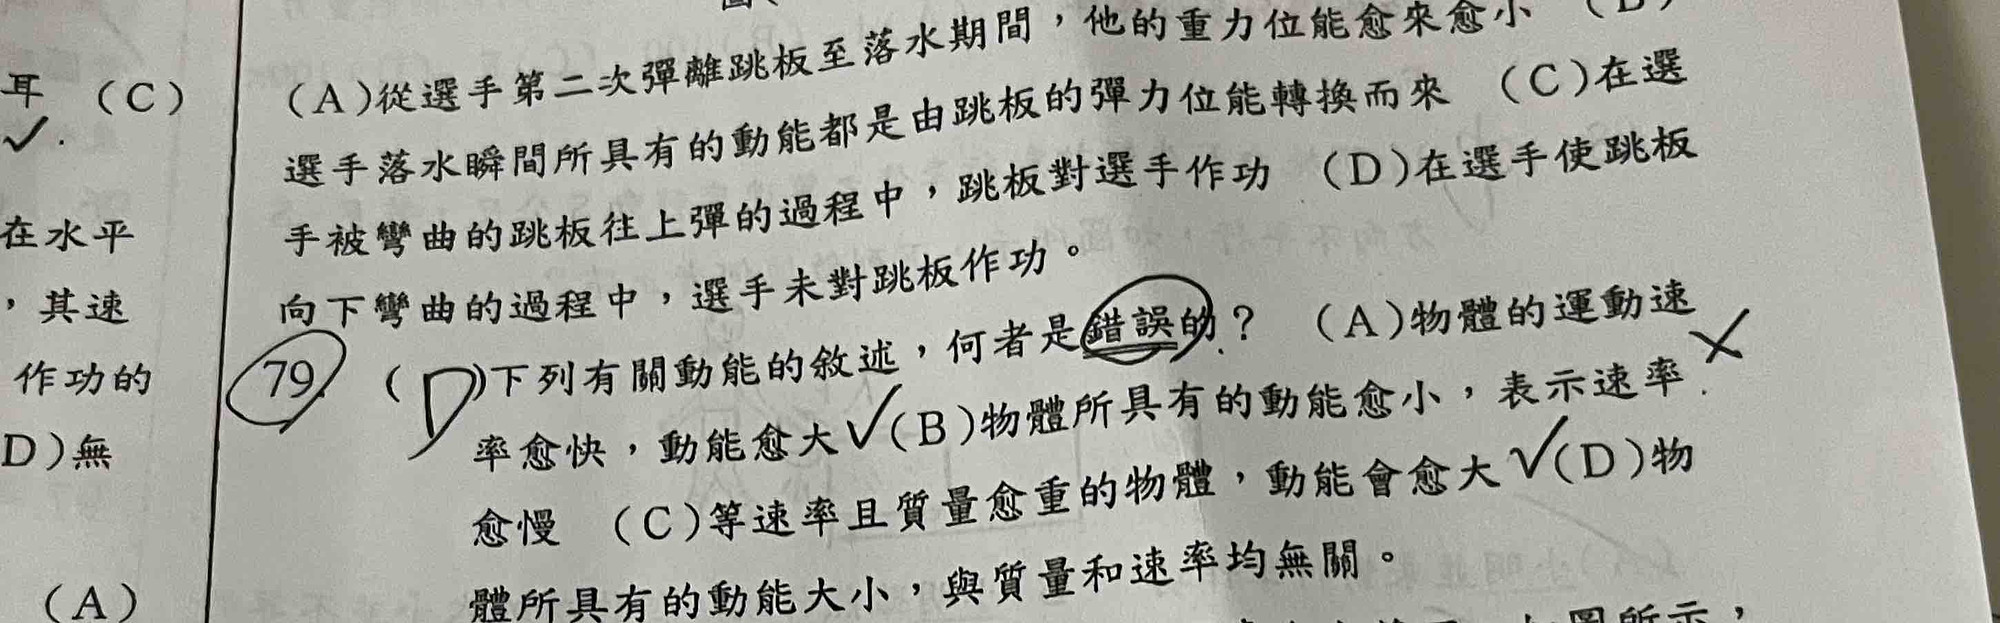 耳 (C)
在水平
，其速
作功的
D)無
(A)
(A)從選手第二次彈離跳板至落水期間，他的重力位能愈來愈小
選手落水瞬間所具有的動能都是由跳板的彈力位能轉換而來 (C)在選
手被彎曲的跳板往上彈的過程中，跳板對選手作功 (D)在選手使跳板
向下彎曲的過程中，選手未對跳板作功。
79. (D)下列有關動能的敘述，何者是錯誤的？ (A)物體的運動速
率愈快，動能愈大✓(B)物體所具有的動能愈小，表示速率
愈慢 (C)等速率且質量愈重的物體，動能會愈大✓(D)物
體所具有的動能大小，與質量和速率均無關。